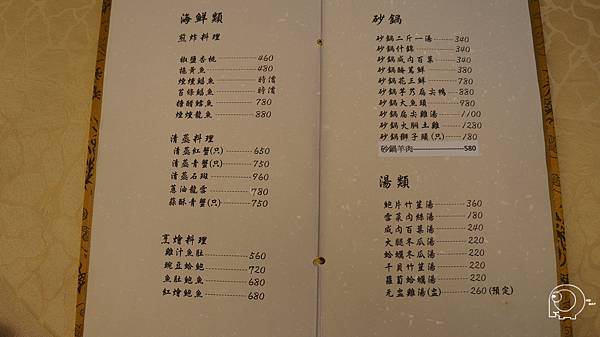 海鮮類
煎炸料理
椒鹽杏鮑 460
拖黃魚 480
煙燻鯧魚 特價
苔條鯧魚 特價
糖醋鱈魚 780
煙燻龍魚 880
清蒸料理
清蒸紅蟹(只) 650
清蒸青蟹(只) 750
清蒸石斑 960
蔥油龍雪 780
蒜酥青蟹(只) 750
烹燴料理
雞汁魚肚 560
豌豆蛤鮑 720
魚肚鮑魚 680
紅燴鮑魚 680
砂鍋
砂鍋二斤一湯 340
砂鍋什錦 340
砂鍋咸肉百葉 340
砂鍋醃篤鮮 380
砂鍋花三鮮 780
砂鍋芋艿扁尖鴨 880
砂鍋大魚頭 980
砂鍋扁尖雞湯 1100
砂鍋火胴土雞 1280
砂鍋獅子頭(只) 180
砂鍋羊肉 580
湯類
鮑片竹笙湯 360
雪菜肉絲湯 180
咸肉百葉湯 240
火腿冬瓜湯 220
蛤蠣冬瓜湯 220
干貝竹笙湯 220
蘿蔔蛤蠣湯 220
元盅雞湯(盅) 260(預定)